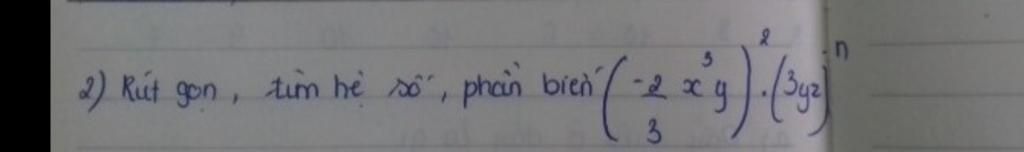 2) Rút gọn, tìm hệ số, phần biến (-2/3 x³y)² . (3yz)ⁿ